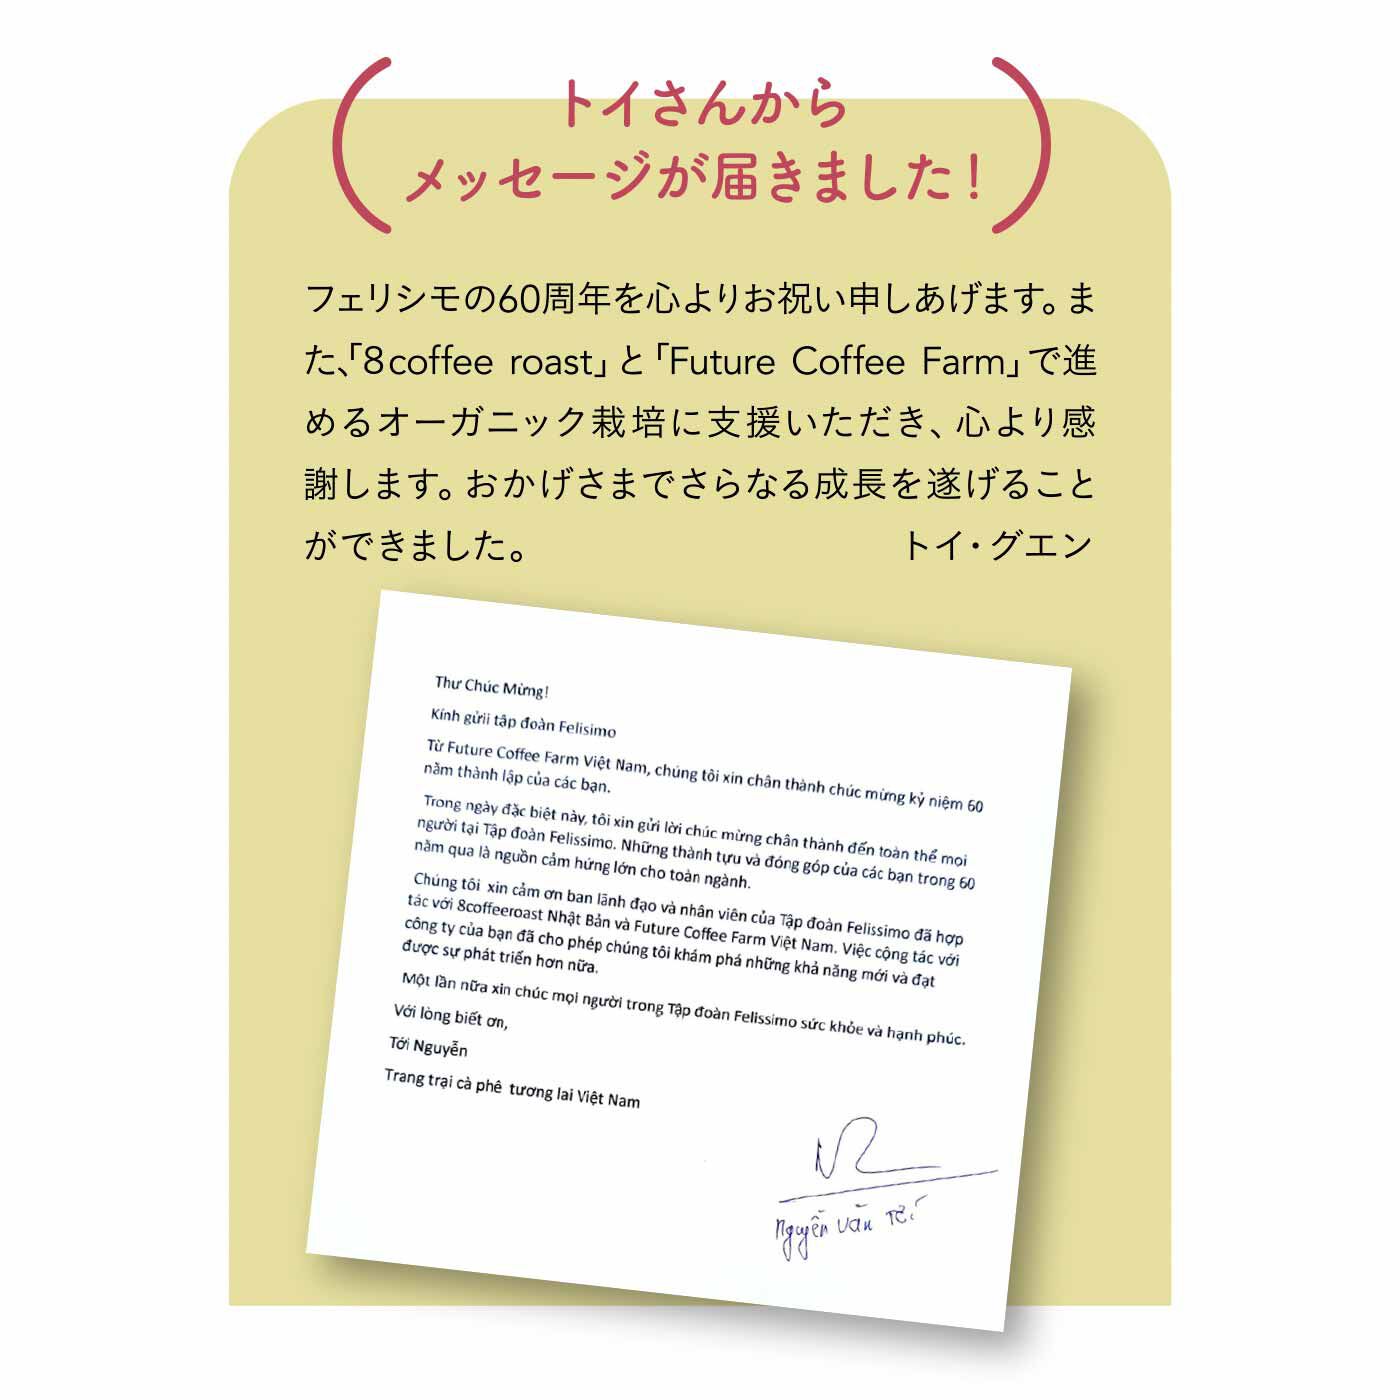 トイさんから
メッセージが届きました！
フェリシモの60周年を心よりお祝い申しあげます。ま
た、「8coffee roast」と「Future Coffee Farm」で進
めるオーガニック栽培に支援いただき、心より感
謝します。おかげさまでさらなる成長を遂げること
ができました。 トイ・グエン
Thư Chúc Mừng!
Kính gửii tập đoàn Felisimo
Từ Future Coffee Farm Việt Nam, chúng tôi xin chân thành chúc mừng kỷ niệm 60
năm thành lập của các bạn.
Trong ngày đặc biệt này, tôi xin gửi lời chúc mừng chân thành đến toàn thể mọi
người tại Tập đoàn Felissimo. Những thành tựu và đóng góp của các bạn trong 60
năm qua là nguồn cảm hứng lớn cho toàn ngành.
Chúng tôi xin cảm ơn ban lãnh đạo và nhân viên của Tập đoàn Felissimo đã hợp
tác với 8coffeeroast Nhật Bản và Future Coffee Farm Việt Nam. Việc cộng tác với
công ty của bạn đã cho phép chúng tôi khám phá những khả năng mới và đạt
được sự phát triển hơn nữa.
Một lần nữa xin chúc mọi người trong Tập đoàn Felissimo sức khỏe và hạnh phúc.
Với lòng biết ơn,
Tới Nguyễn
Trang trại cà phê tương lai Việt Nam
Nguyễn Văn Tới